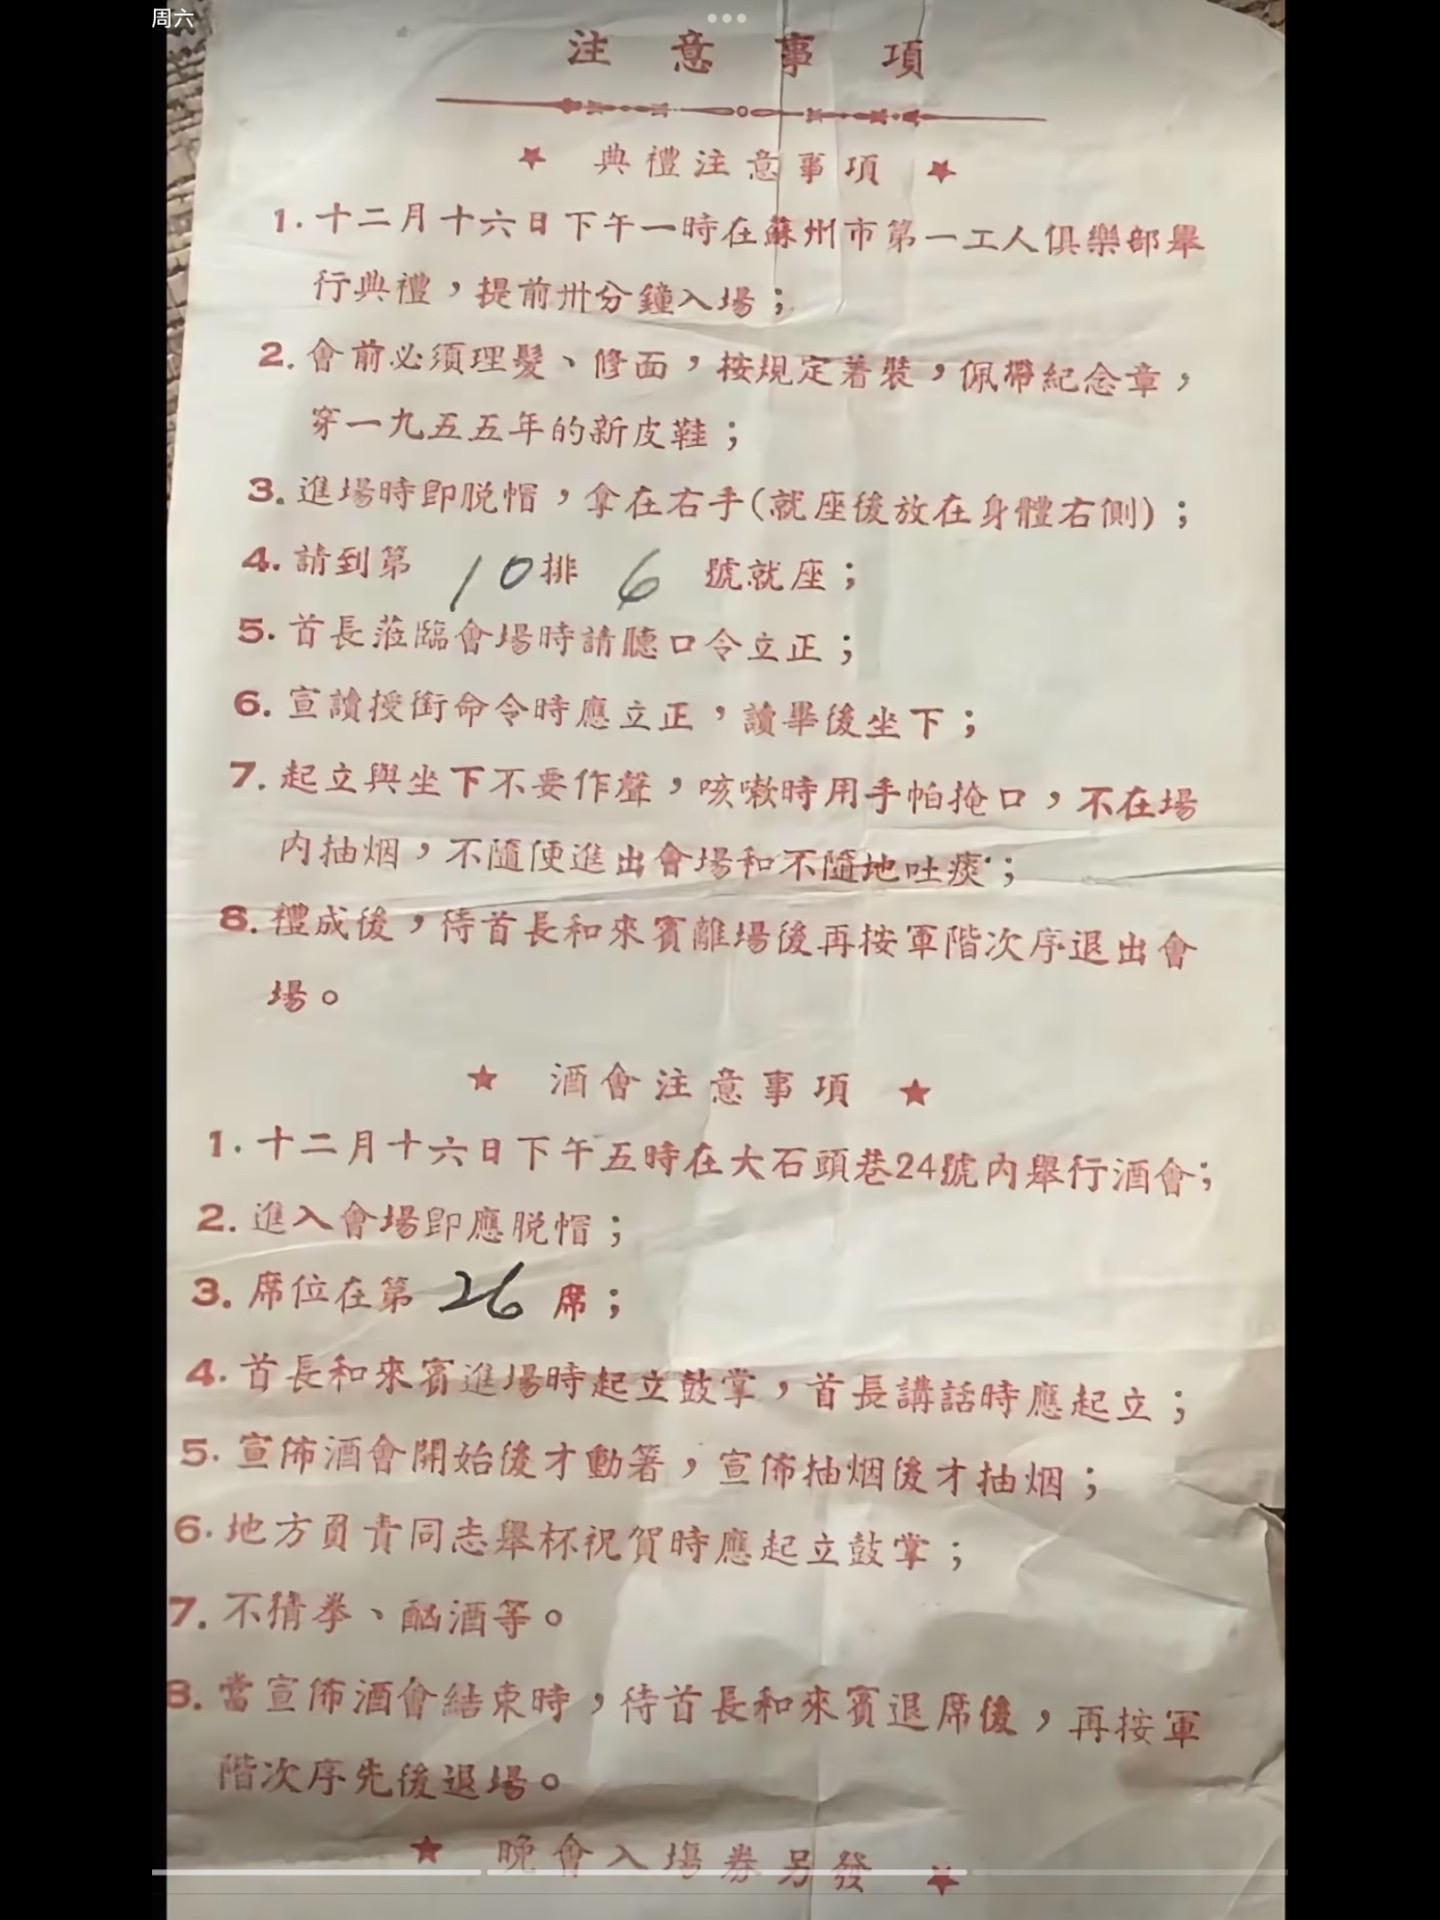 周六
注意事項
★ 典禮注意事項 ★
1. 十二月十六日下午一時在蘇州市第一工人俱樂部舉
行典禮，提前卅分鐘入場；
2. 會前必須理髮、修面，按規定著裝，佩帶紀念章，
穿一九五五年的新皮鞋；
3. 進場時即脱帽，拿在右手(就座後放在身體右側)；
4. 請到第 10 排 6 號就座；
5. 首長蒞臨會場時請聽口令立正；
6. 宣讀授銜命令時應立正，讀畢後坐下；
7. 起立與坐下不要作聲，咳嗽時用手帕掩口，不在場
内抽烟，不隨便進出會場和不隨地吐痰；
8. 禮成後，待首長和來賓離場後再按軍階次序退出會
場。
★ 酒會注意事項 ★
1. 十二月十六日下午五時在大石頭巷24號内舉行酒會；
2. 進入會場即應脱帽；
3. 席位在第 26 席；
4. 首長和來賓進場時起立鼓掌，首長講話時應起立；
5. 宣佈酒會開始後才動箸，宣佈抽烟後才抽烟；
6. 地方負責同志舉杯祝賀時應起立鼓掌；
7. 不猜拳、酗酒等。
8. 當宣佈酒會結束時，待首長和來賓退席後，再按軍
階次序先後退場。
★ 晚會入場券另發 ★